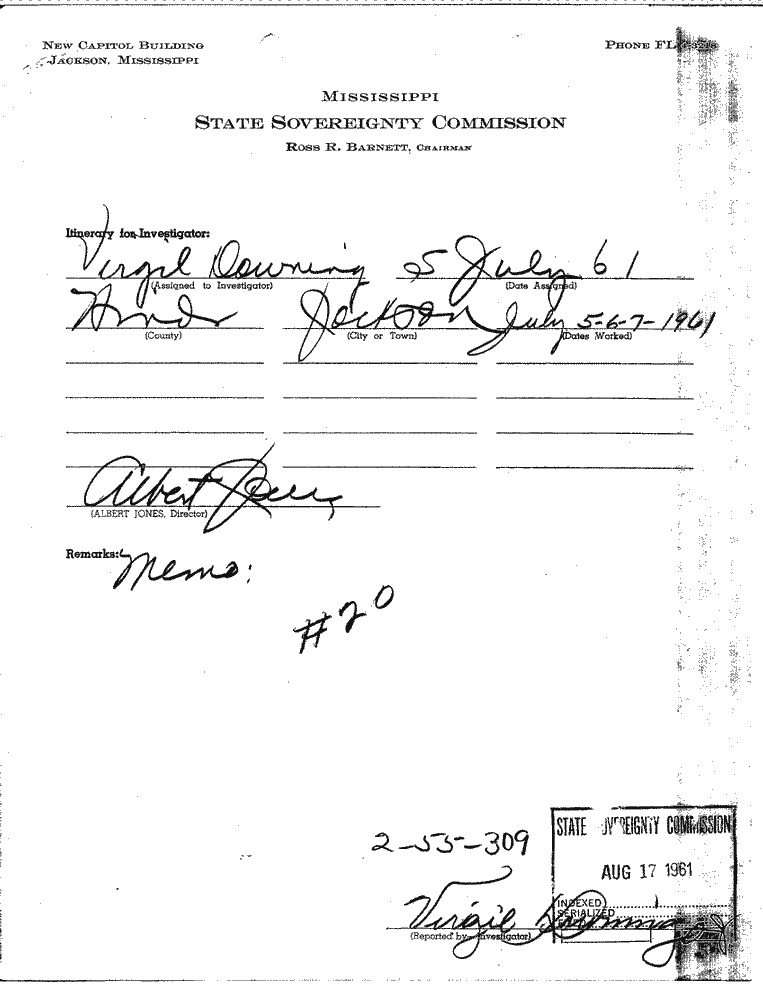 NEW CAPITOL BUILDING
JACKSON, MISSISSIPPI
PHONE FL
MISSISSIPPI
STATE SOVEREIGNTY COMMISSION
ROSS R. BARNETT, CHAIRMAN
Itinerary for Investigator:
Virgil Downing 5 July 61
(Assigned to Investigator) (Date Assigned)
Hinds Jackson July 5-6-7-1961
(County) (City or Town) (Dates Worked)
Albert Jones
(ALBERT JONES, Director)
Remarks:
Memo:
#20
2-55-309
STATE SOVEREIGNTY COMMISSION
AUG 17 1961
INDEXED
SERIALIZED
Virgil Downing
(Reported by Investigator)